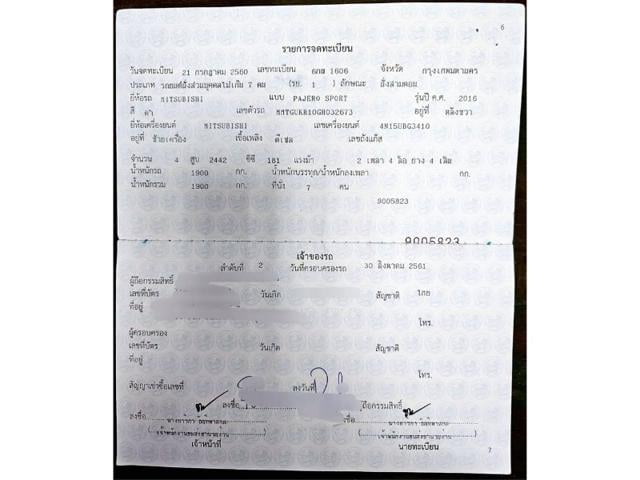 6
รายการจดทะเบียน
วันจดทะเบียน 21 กรกฎาคม 2560 เลขทะเบียน 6กส 1606 จังหวัด กรุงเทพมหานคร
ประเภท รถยนต์นั่งส่วนบุคคลไม่เกิน 7 คน (รย. 1 ) ลักษณะ นั่งสามตอน
ยี่ห้อรถ MITSUBISHI แบบ PAJERO SPORT รุ่นปี ค.ศ. 2016
สี ดำ เลขตัวรถ MMTGUKR10GH032673 อยู่ที่ ตลิ่งขวา
ยี่ห้อเครื่องยนต์ MITSUBISHI เลขเครื่องยนต์ 4N15UBG3410
อยู่ที่ ซ้ายเครื่อง เชื้อเพลิง ดีเซล เลขถังแก๊ส
จำนวน 4 สูบ 2442 ซีซี 181 แรงม้า 2 เพลา 4 ล้อ ยาง 4 เส้น
น้ำหนักรถ 1900 กก. น้ำหนักบรรทุก/น้ำหนักลงเพลา กก.
น้ำหนักรวม 1900 กก. ที่นั่ง 7 คน
9005823
9005823
เจ้าของรถ
ลำดับที่ 2 วันที่ครอบครองรถ 30 สิงหาคม 2561
ผู้ถือกรรมสิทธิ์
เลขที่บัตร วันเกิด สัญชาติ ไทย
ที่อยู่
โทร.
ผู้ครอบครอง
เลขที่บัตร วันเกิด สัญชาติ
ที่อยู่
โทร.
สัญญาเช่าซื้อเลขที่ ลงวันที่
ลงชื่อ ถือกรรมสิทธิ์
ลงชื่อ ชื่อ
เจ้าหน้าที่ นายทะเบียน
7